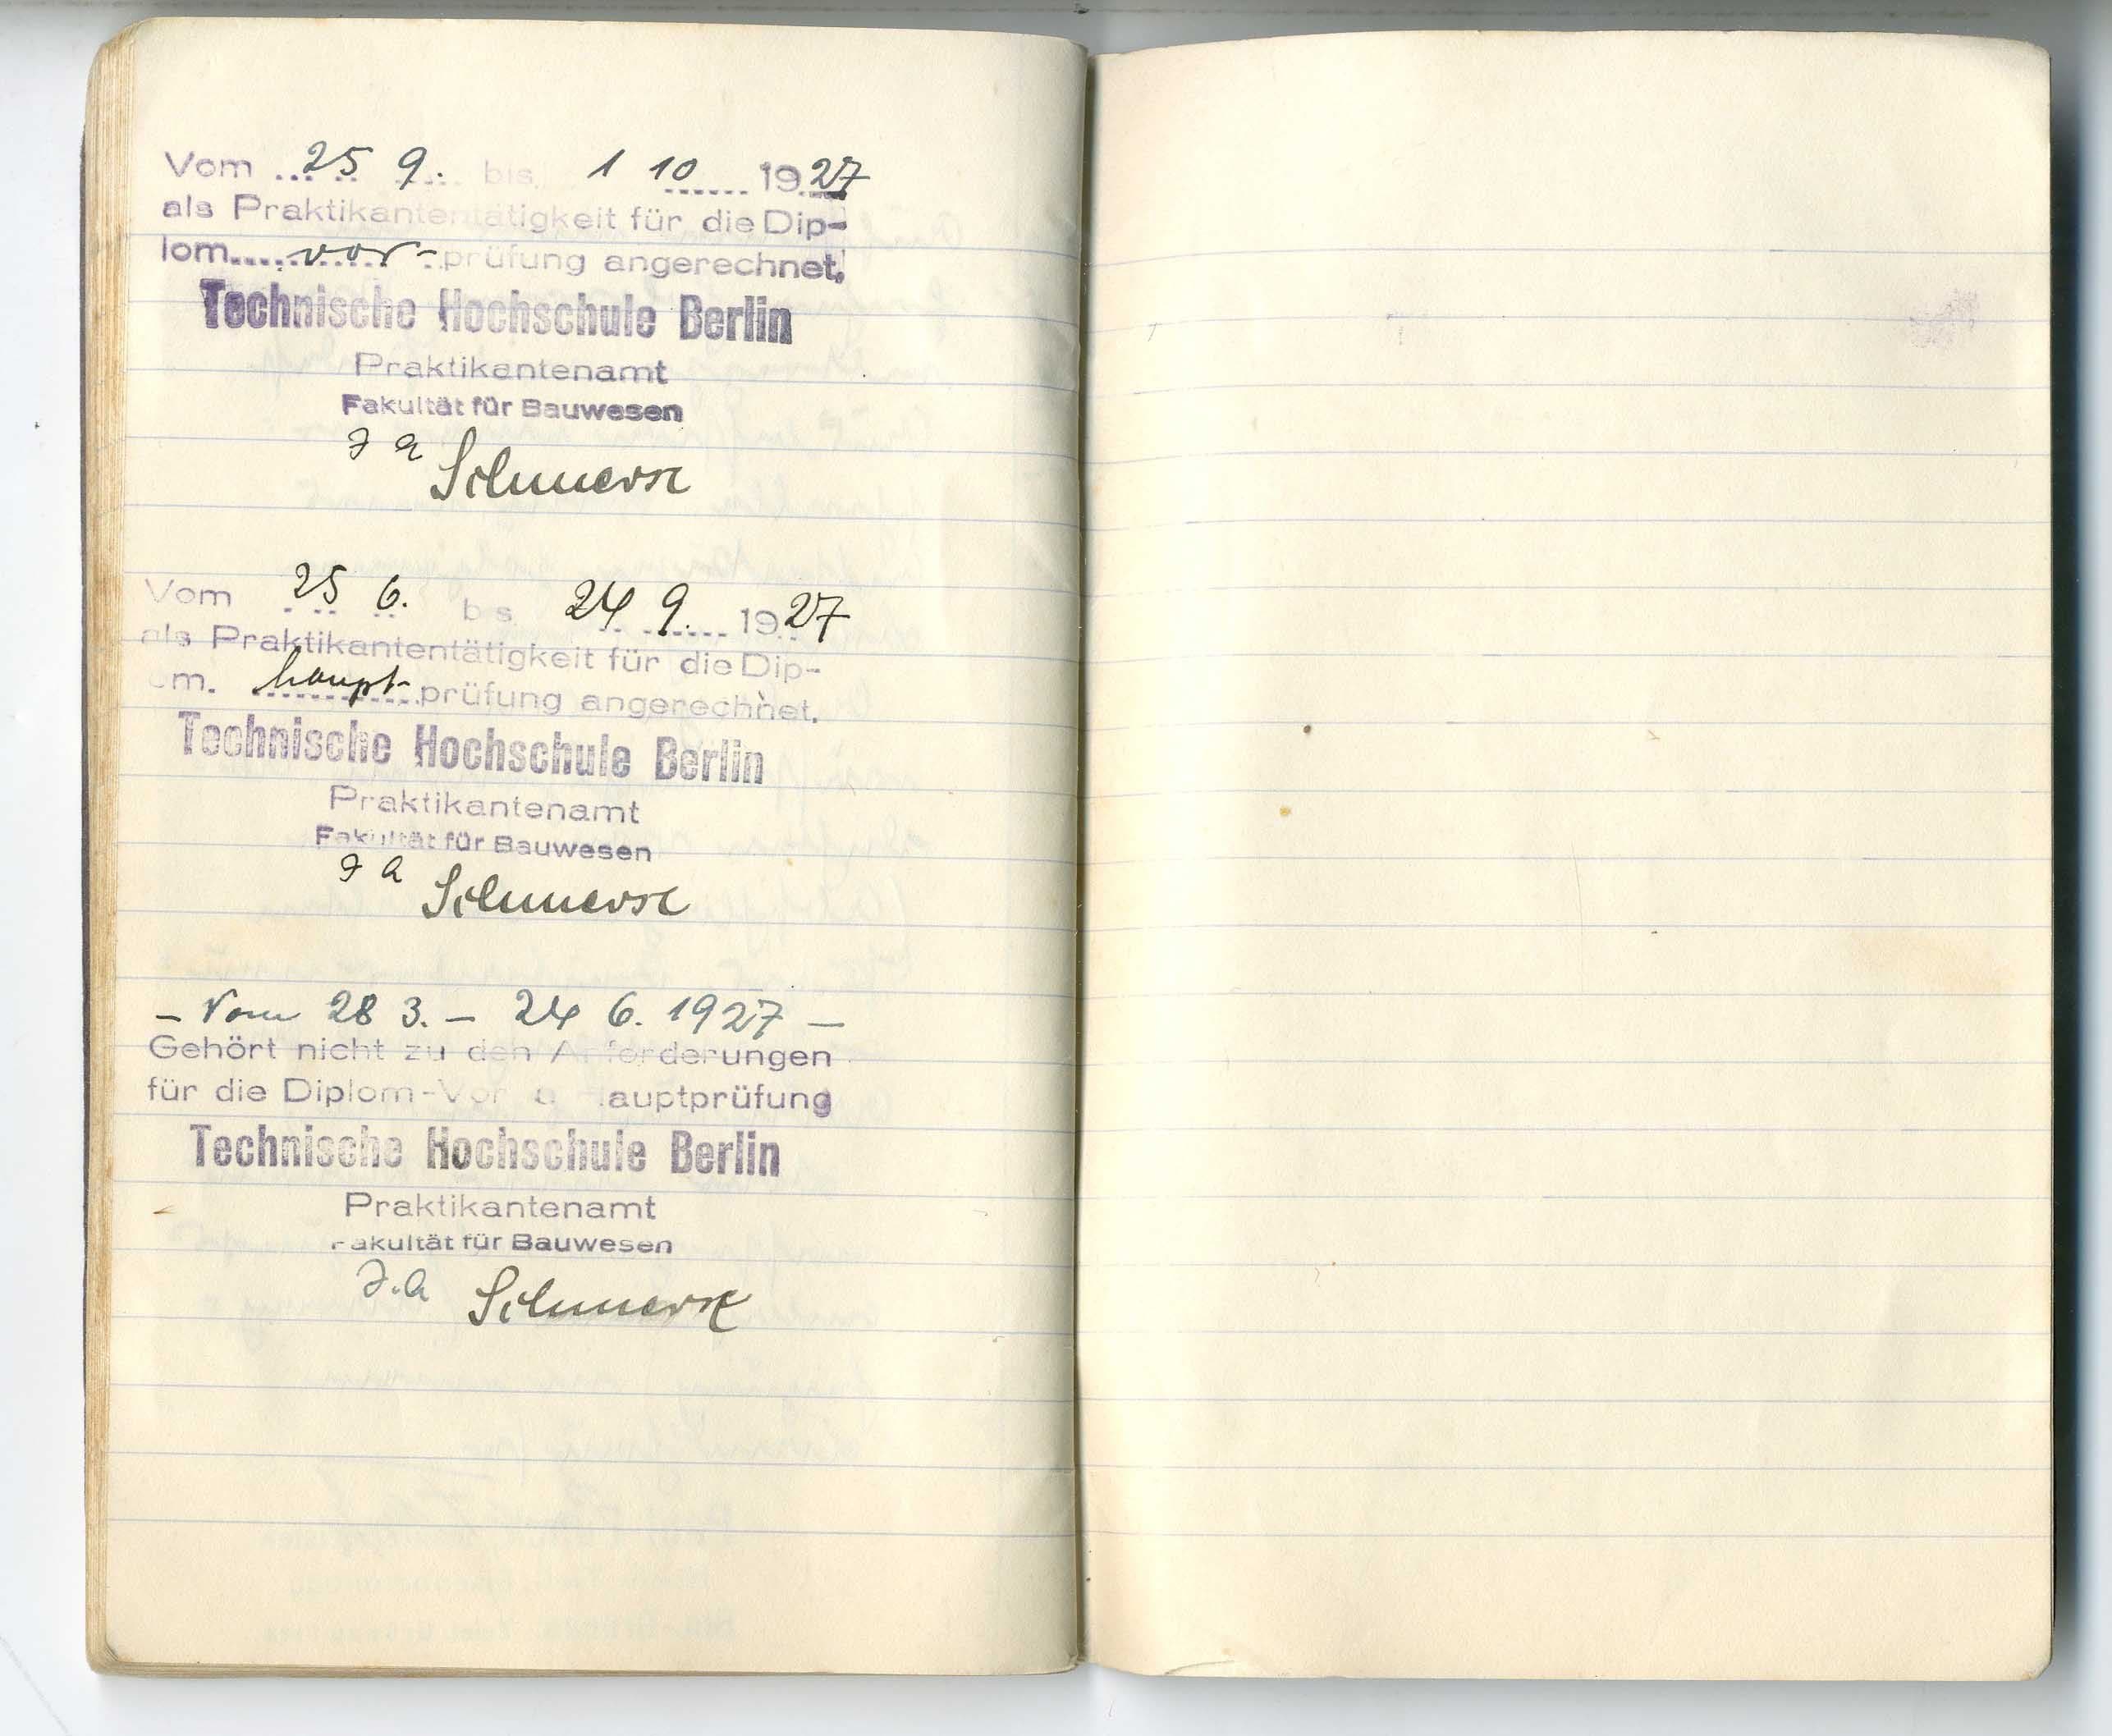 Vom 25 9. bis 1 10 1927
als Praktikantentätigkeit für die Dip-
lom vor- prüfung angerechnet.
Technische Hochschule Berlin
Praktikantenamt
Fakultät für Bauwesen
J A
Vom 25 6. bis 24 9. 1927
als Praktikantentätigkeit für die Dip-
om. haupt- prüfung angerechnet.
Technische Hochschule Berlin
Praktikantenamt
Fakultät für Bauwesen
J A
– Vom 28 3. – 24 6. 1927 –
Gehört nicht zu den Anforderungen
für die Diplom-Vor u Hauptprüfung
Technische Hochschule Berlin
Praktikantenamt
Fakultät für Bauwesen
J.A